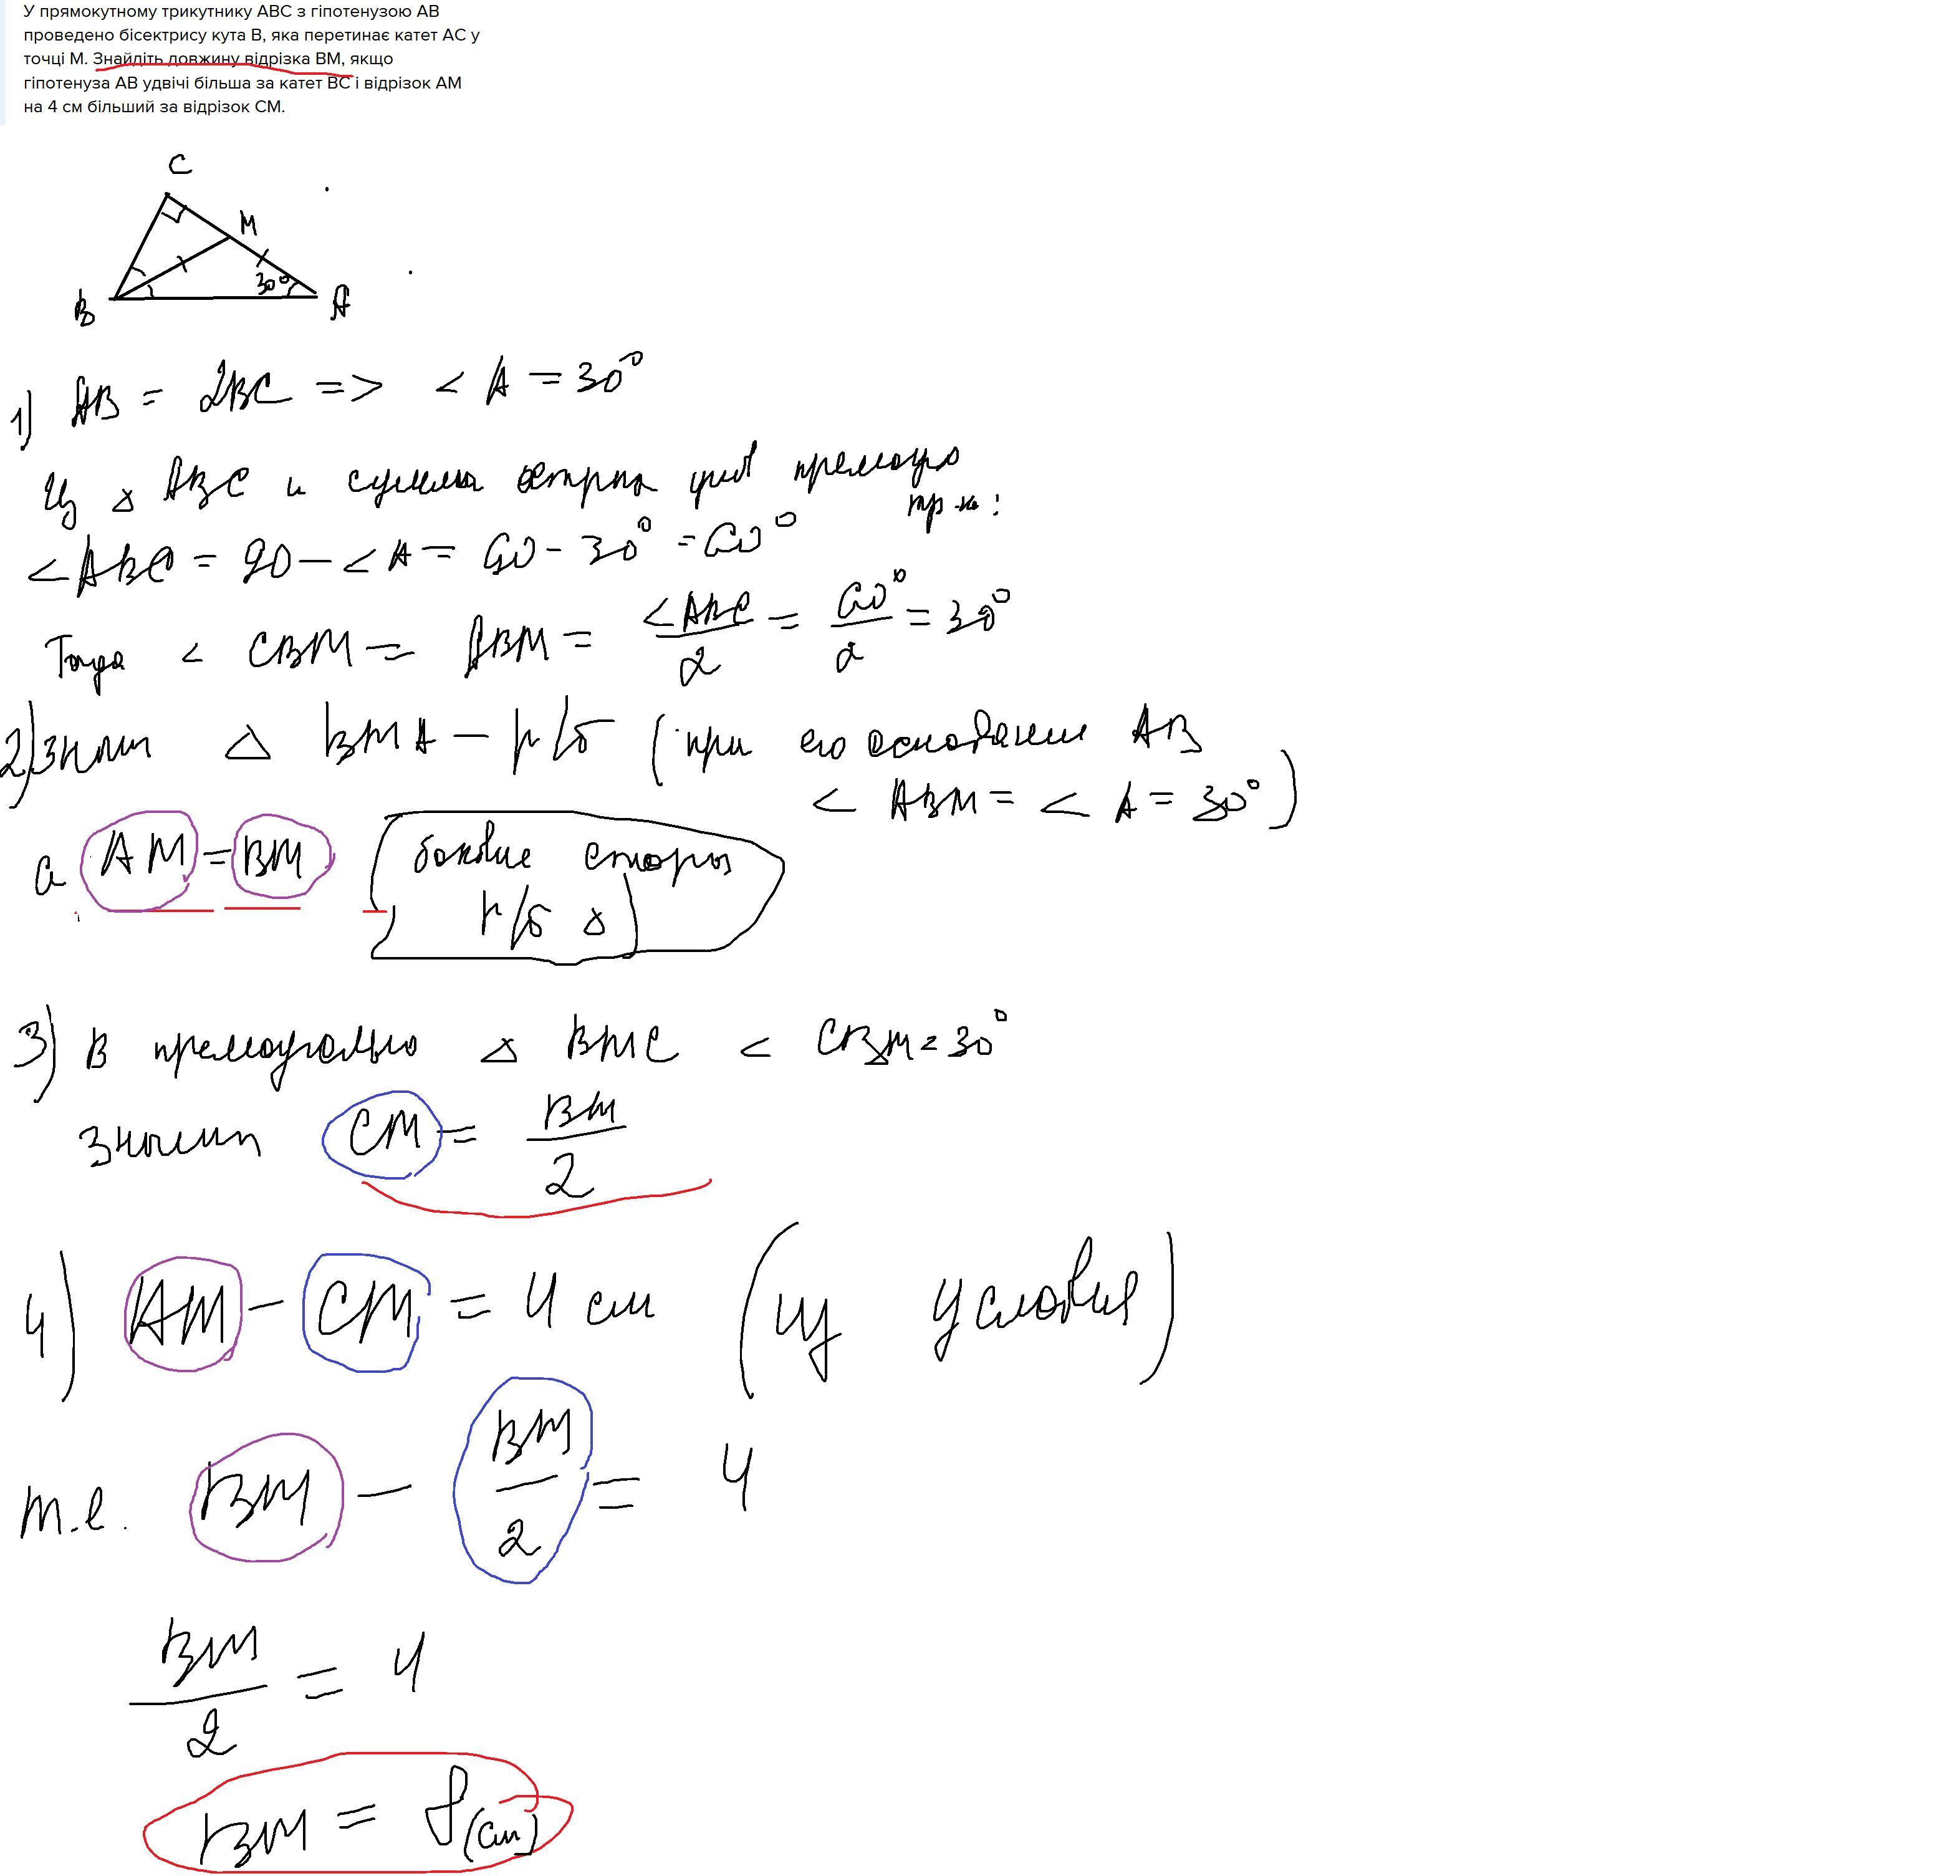 У прямокутному трикутнику ABC з гіпотенузою AB
проведено бісектрису кута B, яка перетинає катет AC у
точці M. Знайдіть довжину відрізка BM, якщо
гіпотенуза AB удвічі більша за катет BC і відрізок AM
на 4 см більший за відрізок CM.
C
M
30°
B
A
1) AB = 2BC => < A = 30°
Из △ ABC и сумма острых углов прямоуг
тр-ка:
< ABC = 90 - < A = 90 - 30° = 60°
Тогда < CBM = ABM = < ABC / 2 = 60° / 2 = 30°
2) значит △ BMA - р/б (при его основании AB
< ABM = < A = 30°)
а AM = BM боковые стороны
р/б △
3) В прямоугольно △ BMC < CBM = 30°
значит CM = BM / 2
4) AM - CM = 4 см (из условия)
т.е. BM - BM / 2 = 4
BM / 2 = 4
BM = 8 (см)